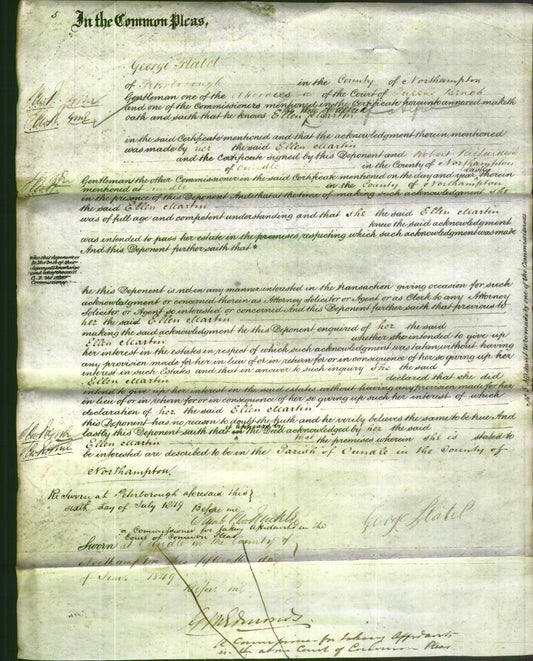 5
In the Common Pleas,
George Slatel
of Peterborough in the County of Northampton
Gentleman one of the Attornies of the Court of Queens Bench
and one of the Commissioners mentioned in the Certificate hereunto annexed maketh
oath and saith that he knows Ellen Martin
in the said Certificate mentioned and that the acknowledgment therein mentioned
was made by her the said Ellen Martin
and the Certificate signed by this Deponent and Robert Richardson
of Oundle in the County of Northampton
Gentleman the other Commissioner in the said Certificate mentioned on the day and year therein
mentioned at Oundle in the County of Northampton
in the presence of this Deponent And that at the time of making such acknowledgment She
the said Ellen Martin
was of full age and competent understanding and that She the said Ellen Martin
knew the said acknowledgment
was intended to pass her estate in the premises respecting which such acknowledgment was made
And this Deponent further saith that
he this Deponent is not in any manner interested in the transaction giving occasion for such
acknowledgment or concerned therein as Attorney Solicitor or Agent or as Clerk to any Attorney
Solicitor or Agent so interested or concerned And this Deponent further saith that previous to
her the said Ellen Martin
making the said acknowledgment he this Deponent enquired of her the said
Ellen Martin whether she intended to give up
her interest in the estates in respect of which such acknowledgment was taken without having
any provision made for her in lieu of or in return for or in consequence of her so giving up her
interest in such Estates and that in answer to such inquiry She the said
Ellen Martin declared that she did
intend to give up her interest in the said estates without having any provision made for her
in lieu of or in return for or in consequence of her so giving up such her interest of which
declaration of her the said Ellen Martin
this Deponent has no reason to doubt the truth and he verily believes the same to be true And
lastly this Deponent saith that it appears by the Deed acknowledged by her the said
Ellen Martin that the premises wherein she is stated to
be interested are described to be in the Parish of Oundle in the County of
Northampton
Re Sworn at Peterborough aforesaid this
sixth day of July 1849 Before me
a Commissioner for taking Affidavits in the
Court of Common Pleas
George Slatel
Sworn at Oundle in the County of
Northampton this fifteenth day
of June 1849
Before me
A Commissioner for taking Affidavits
in the above Court of Common Pleas